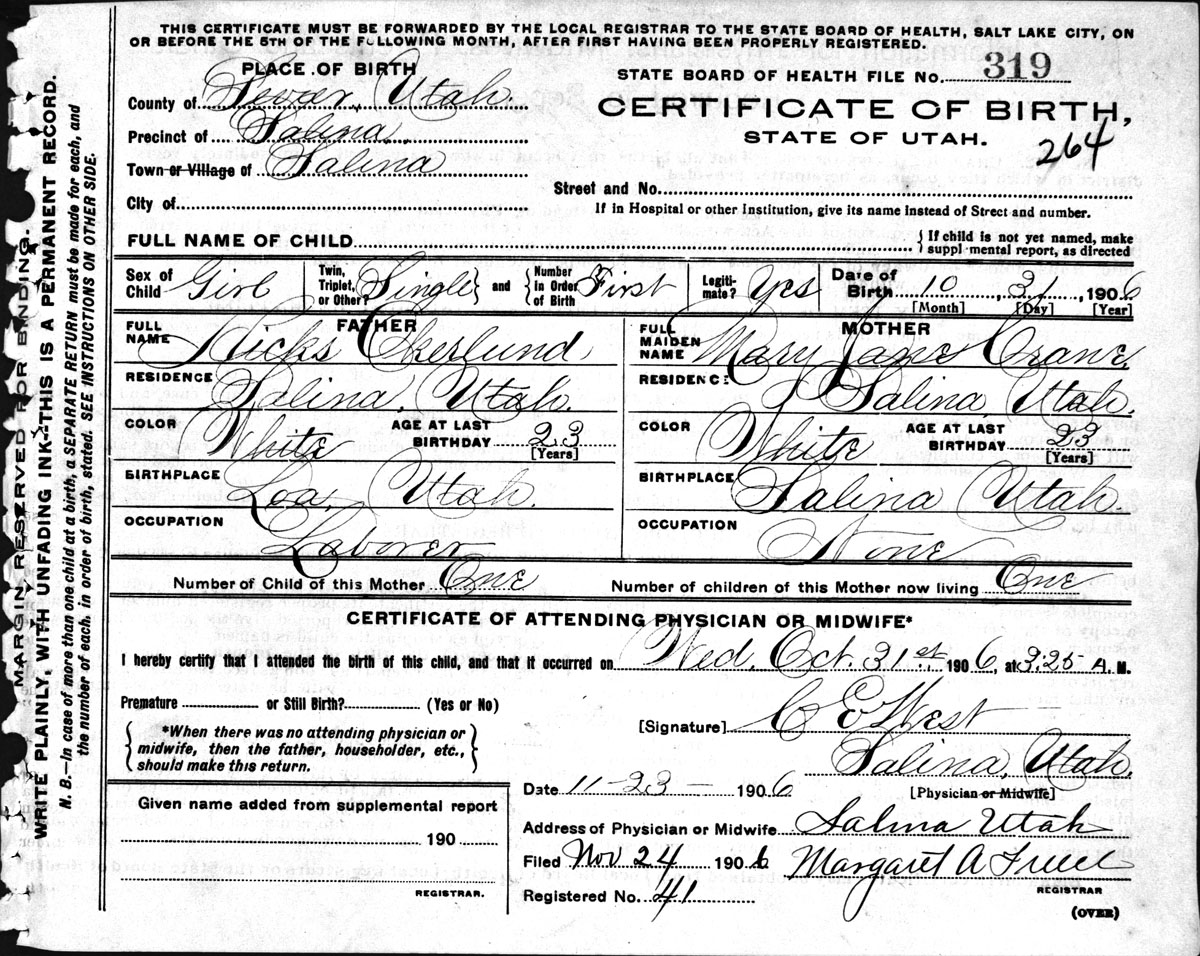 THIS CERTIFICATE MUST BE FORWARDED BY THE LOCAL REGISTRAR TO THE STATE BOARD OF HEALTH, SALT LAKE CITY, ON
OR BEFORE THE 5TH OF THE FOLLOWING MONTH, AFTER FIRST HAVING BEEN PROPERLY REGISTERED.
PLACE OF BIRTH
STATE BOARD OF HEALTH FILE No. 319
County of Sevier, Utah.
CERTIFICATE OF BIRTH,
Precinct of Salina,
STATE OF UTAH.
264
Town or Village of Salina
Street and No.
City of
If in Hospital or other Institution, give its name instead of Street and number.
FULL NAME OF CHILD
{If child is not yet named, make
supplemental report, as directed
Sex of Child Girl
Twin, Triplet, or Other? Single} and {Number in Order of Birth First
Legitimate? Yes
Date of Birth 10, 31, 1906
[Month] [Day] [Year]
FATHER
FULL NAME Hicks Okerlund
RESIDENCE Salina, Utah.
COLOR White
AGE AT LAST BIRTHDAY 23
[Years]
BIRTHPLACE Loa, Utah.
OCCUPATION Laborer
MOTHER
FULL MAIDEN NAME Mary Jane Crane,
RESIDENCE Salina, Utah.
COLOR White
AGE AT LAST BIRTHDAY 23
[Years]
BIRTHPLACE Salina Utah.
OCCUPATION None
Number of Child of this Mother One
Number of children of this Mother now living One
CERTIFICATE OF ATTENDING PHYSICIAN OR MIDWIFE*
I hereby certify that I attended the birth of this child, and that it occurred on Wed. Oct. 31st 1906, at 3:25 A. M.
Premature or Still Birth? (Yes or No)
[Signature] C E West
{*When there was no attending physician or
midwife, then the father, householder, etc.,
should make this return.}
Salina, Utah.
[Physician or Midwife]
Date 11-23- 1906
Given name added from supplemental report
190
REGISTRAR.
Address of Physician or Midwife Salina Utah
Filed Nov 24 1906 Margaret A
REGISTRAR
Registered No. 41
(OVER)
MARGIN RESERVED FOR BINDING.
WRITE PLAINLY, WITH UNFADING INK—THIS IS A PERMANENT RECORD.
N. B.—In case of more than one child at a birth, a SEPARATE RETURN must be made for each, and
the number of each, in order of birth, stated. SEE INSTRUCTIONS ON OTHER SIDE.